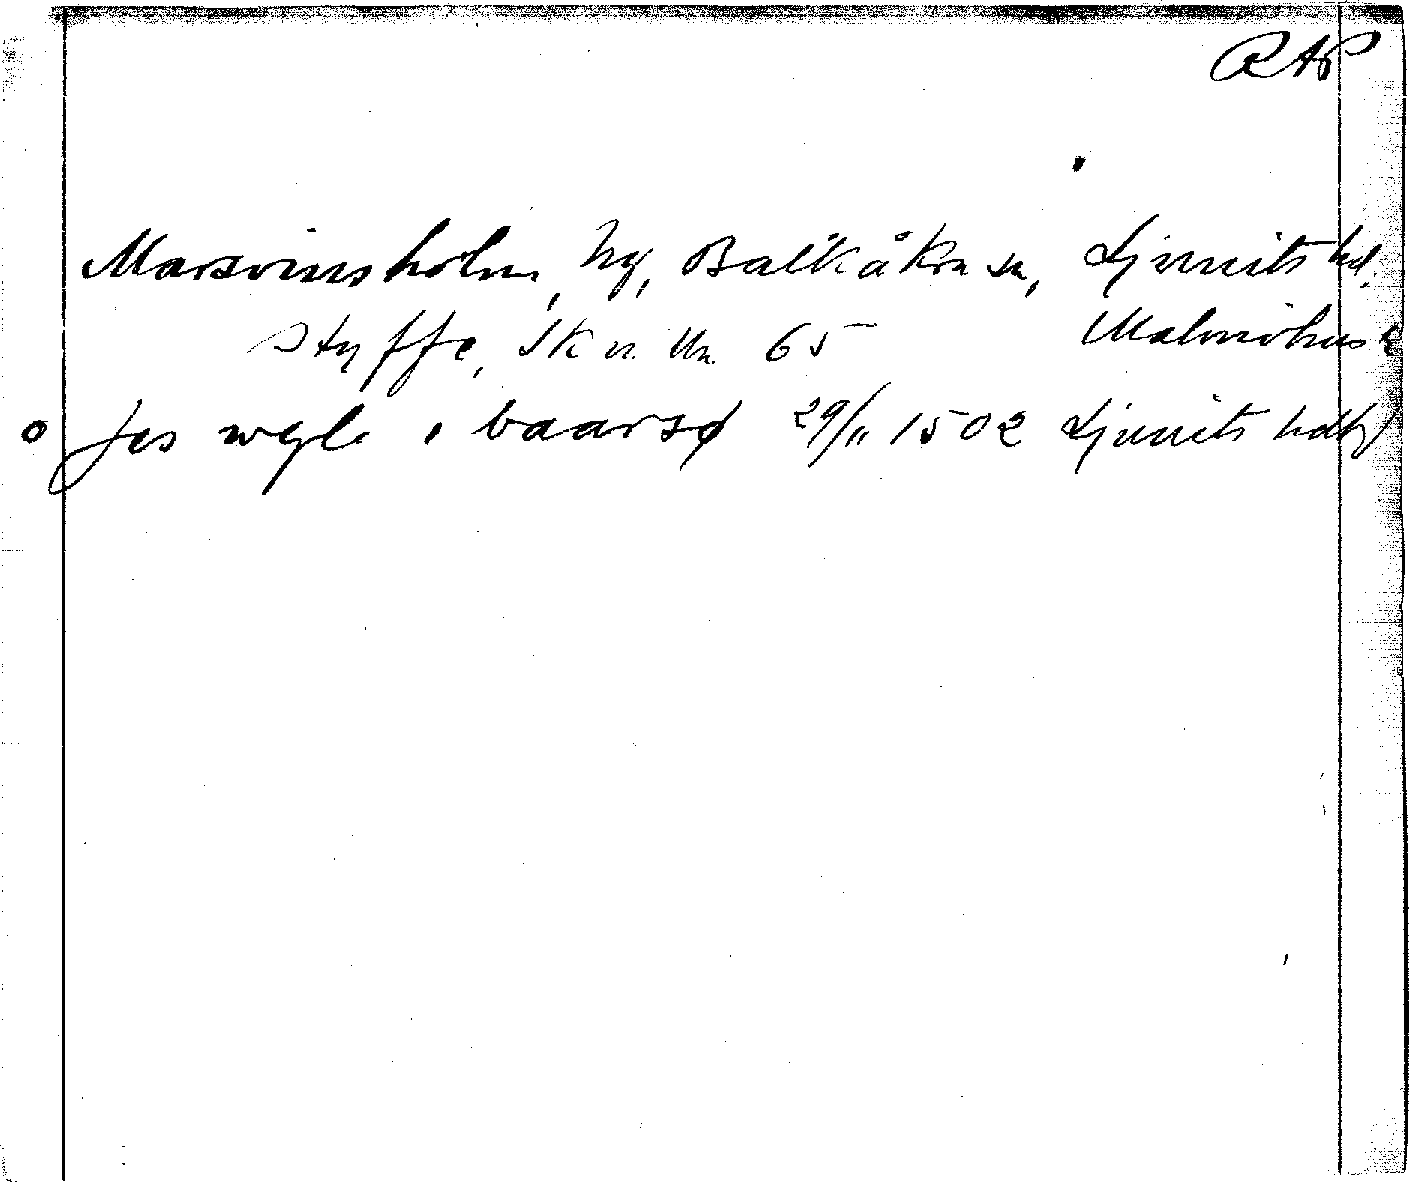 RAP
Marsvinsholm, hg, Balkåkra sn, Ljunits hd.
Styffe, Sk u. Un. 65 Malmöhus l
Jes wgle i baarsø 29/11 1502 Ljunits hdtg